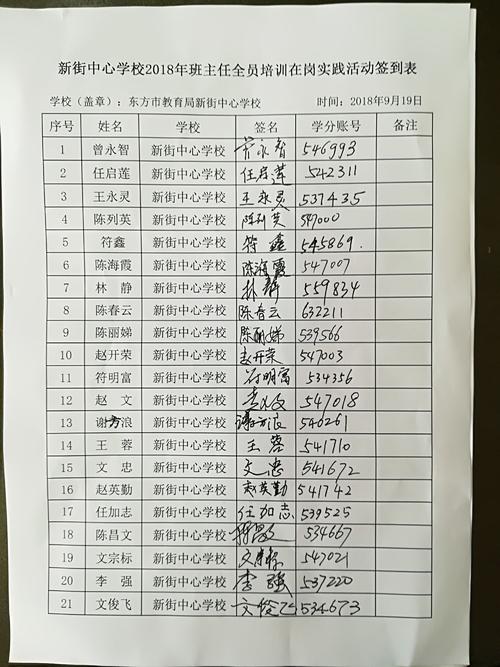 新街中心学校2018年班主任全员培训在岗实践活动签到表
学校（盖章）：东方市教育局新街中心学校 时间：2018年9月19日
序号 姓名 学校 签名 学分账号 备注
1 曾永智 新街中心学校 曾永智 546993
2 任启莲 新街中心学校 任启莲 542311
3 王永灵 新街中心学校 王永灵 537435
4 陈列英 新街中心学校 陈列英 547000
5 符鑫 新街中心学校 符鑫 545869.
6 陈海霞 新街中心学校 陈海霞 547007
7 林 静 新街中心学校 林静 559834
8 陈春云 新街中心学校 陈春云 632211
9 陈丽娣 新街中心学校 陈丽娣 539566
10 赵开荣 新街中心学校 赵开荣 547003
11 符明富 新街中心学校 符明富 534356
12 赵 文 新街中心学校 547018
13 谢方浪 新街中心学校 谢方浪 546261
14 王 蓉 新街中心学校 王蓉 541710
15 文 忠 新街中心学校 文忠 541672
16 赵英勤 新街中心学校 赵英勤 541742
17 任加志 新街中心学校 任加志 539525
18 陈昌文 新街中心学校 陈昌文 534667
19 文宗标 新街中心学校 文宗标 547021
20 李 强 新街中心学校 李强 537220
21 文俊飞 新街中心学校 文俊飞 534673